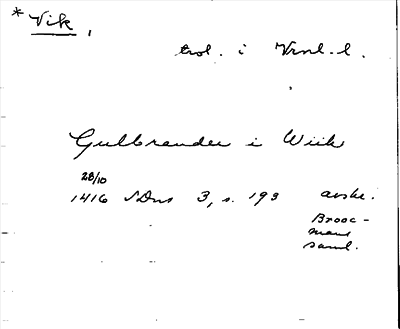 * Vik,
trol. i Vrml. l.
Gulbrander i Wiik
28/10
1416 SDns 3, s. 193 avskr.
Brooc-
mans
saml.